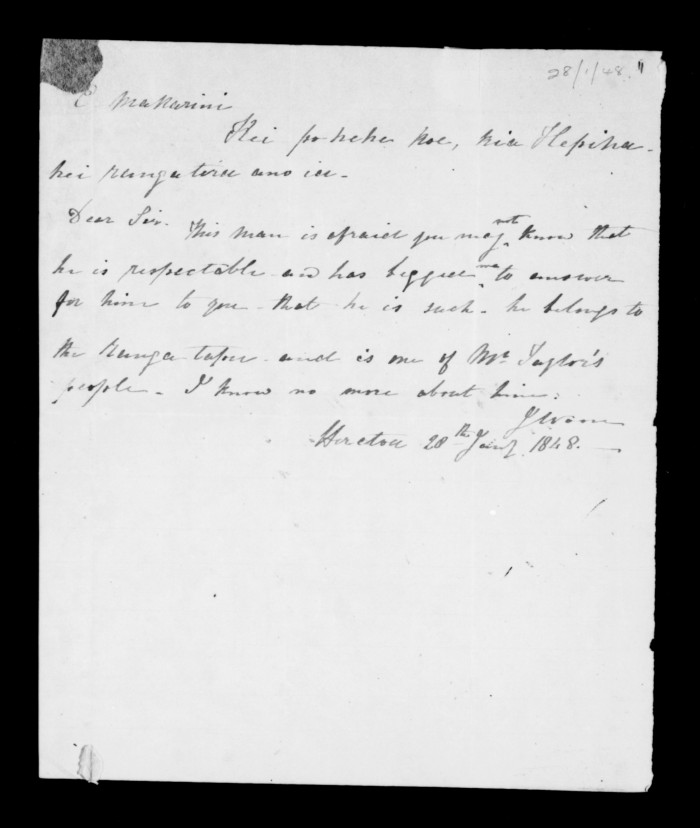 28/1/48.
E Makarini
Kei pohehe koe, kia Hepiha -
hei rangatira ano ia -
Dear Sir. This man is afraid you may not know that
he is respectable and has begged me to answer
for him to you that he is such - he belongs to
the Ranga-tapu and is one of Mr Taylor's
people - I know no more about him:
28th Jany 1848. -